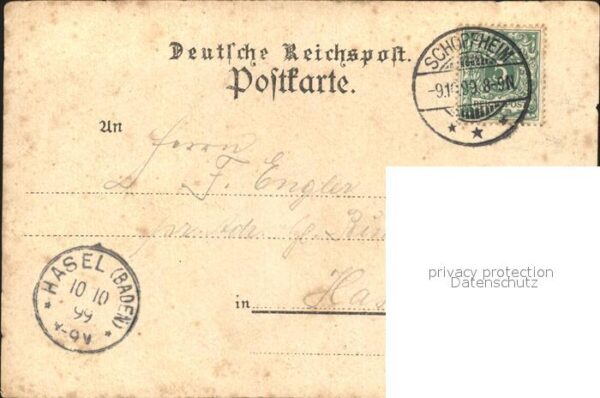 Deutsche Reichspost.
Postkarte.
SCHOPFHEIM
-9.10.99.8-9N
An
Herrn
F. Engler
in Has
HASEL (BADEN)
10 10
99
privacy protection
Datenschutz